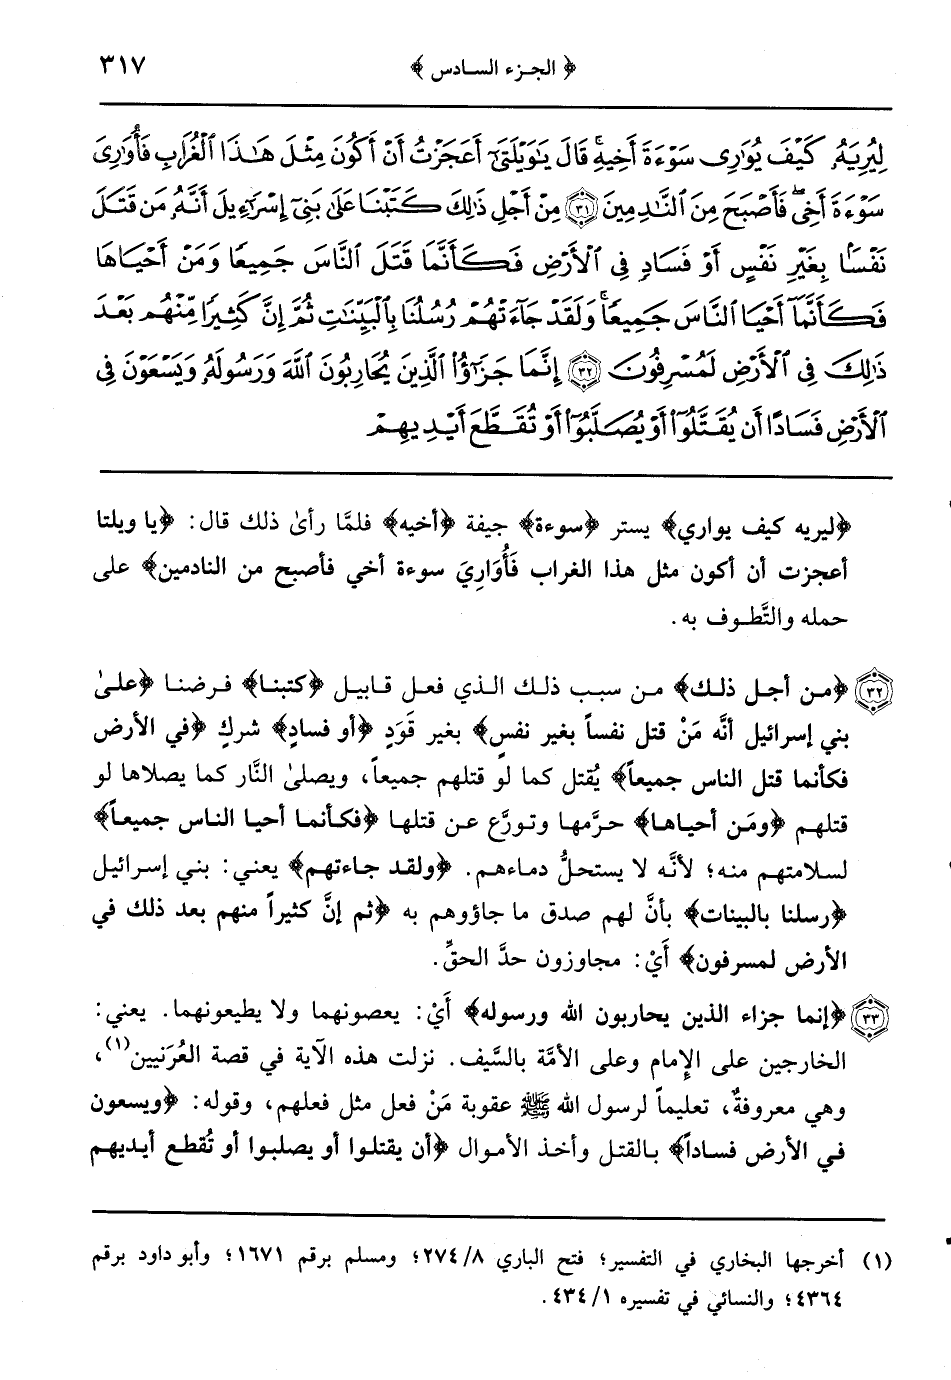 ﴿ الجزء السادس ﴾ ٣١٧
لِيُرِيَهُۥ كَيْفَ يُوَٰرِى سَوْءَةَ أَخِيهِ ۚ قَالَ يَٰوَيْلَتَىٰٓ أَعَجَزْتُ أَنْ أَكُونَ مِثْلَ هَٰذَا ٱلْغُرَابِ فَأُوَٰرِىَ
سَوْءَةَ أَخِى ۖ فَأَصْبَحَ مِنَ ٱلنَّٰدِمِينَ ٣١ مِنْ أَجْلِ ذَٰلِكَ كَتَبْنَا عَلَىٰ بَنِىٓ إِسْرَٰٓءِيلَ أَنَّهُۥ مَن قَتَلَ
نَفْسًۢا بِغَيْرِ نَفْسٍ أَوْ فَسَادٍ فِى ٱلْأَرْضِ فَكَأَنَّمَا قَتَلَ ٱلنَّاسَ جَمِيعًا وَمَنْ أَحْيَاهَا
فَكَأَنَّمَآ أَحْيَا ٱلنَّاسَ جَمِيعًا ۚ وَلَقَدْ جَآءَتْهُمْ رُسُلُنَا بِٱلْبَيِّنَٰتِ ثُمَّ إِنَّ كَثِيرًا مِّنْهُم بَعْدَ
ذَٰلِكَ فِى ٱلْأَرْضِ لَمُسْرِفُونَ ٣٢ إِنَّمَا جَزَٰٓؤُا۟ ٱلَّذِينَ يُحَارِبُونَ ٱللَّهَ وَرَسُولَهُۥ وَيَسْعَوْنَ فِى
ٱلْأَرْضِ فَسَادًا أَن يُقَتَّلُوٓا۟ أَوْ يُصَلَّبُوٓا۟ أَوْ تُقَطَّعَ أَيْدِيهِمْ
﴿ليريه كيف يواري﴾ يستر ﴿سوءة﴾ جيفة ﴿أخيه﴾ فلمَّا رأىٰ ذلك قال: ﴿يا ويلتا
أعجزت أن أكون مثل هذا الغراب فَأُوَارِيَ سوءة أخي فأصبح من النادمين﴾ على
حمله والتَّطوف به.
٣٢ ﴿من أجل ذلك﴾ من سبب ذلك الذي فعل قابيل ﴿كتبنا﴾ فرضنا ﴿علىٰ
بني إسرائيل أنَّه مَنْ قتل نفساً بغير نفس﴾ بغير قَوَدٍ ﴿أو فسادٍ﴾ شركٍ ﴿في الأرض
فكأنما قتل الناس جميعاً﴾ يُقتل كما لو قتلهم جميعاً، ويصلىٰ النَّار كما يصلاها لو
قتلهم ﴿ومَن أحياها﴾ حرَّمها وتورَّع عن قتلها ﴿فكأنما أحيا الناس جميعاً﴾
لسلامتهم منه؛ لأنَّه لا يستحلُّ دماءهم. ﴿ولقد جاءتهم﴾ يعني: بني إسرائيل
﴿رسلنا بالبينات﴾ بأنَّ لهم صدق ما جاؤوهم به ﴿ثم إنَّ كثيراً منهم بعد ذلك في
الأرض لمسرفون﴾ أَيْ: مجاوزون حدَّ الحقِّ.
٣٣ ﴿إنما جزاء الذين يحاربون الله ورسوله﴾ أَيْ: يعصونهما ولا يطيعونهما. يعني:
الخارجين على الإِمام وعلى الأمَّة بالسَّيف. نزلت هذه الآية في قصة العُرَنيين(١)،
وهي معروفةٌ، تعليماً لرسول الله ﷺ عقوبة مَنْ فعل مثل فعلهم، وقوله: ﴿ويسعون
في الأرض فساداً﴾ بالقتل وأخذ الأموال ﴿أن يقتلوا أو يصلبوا أو تُقطع أيديهم
(١) أخرجها البخاري في التفسير؛ فتح الباري ٢٧٤/٨؛ ومسلم برقم ١٦٧١؛ وأبو داود برقم
٤٣٦٤؛ والنسائي في تفسيره ٤٣٤/١.